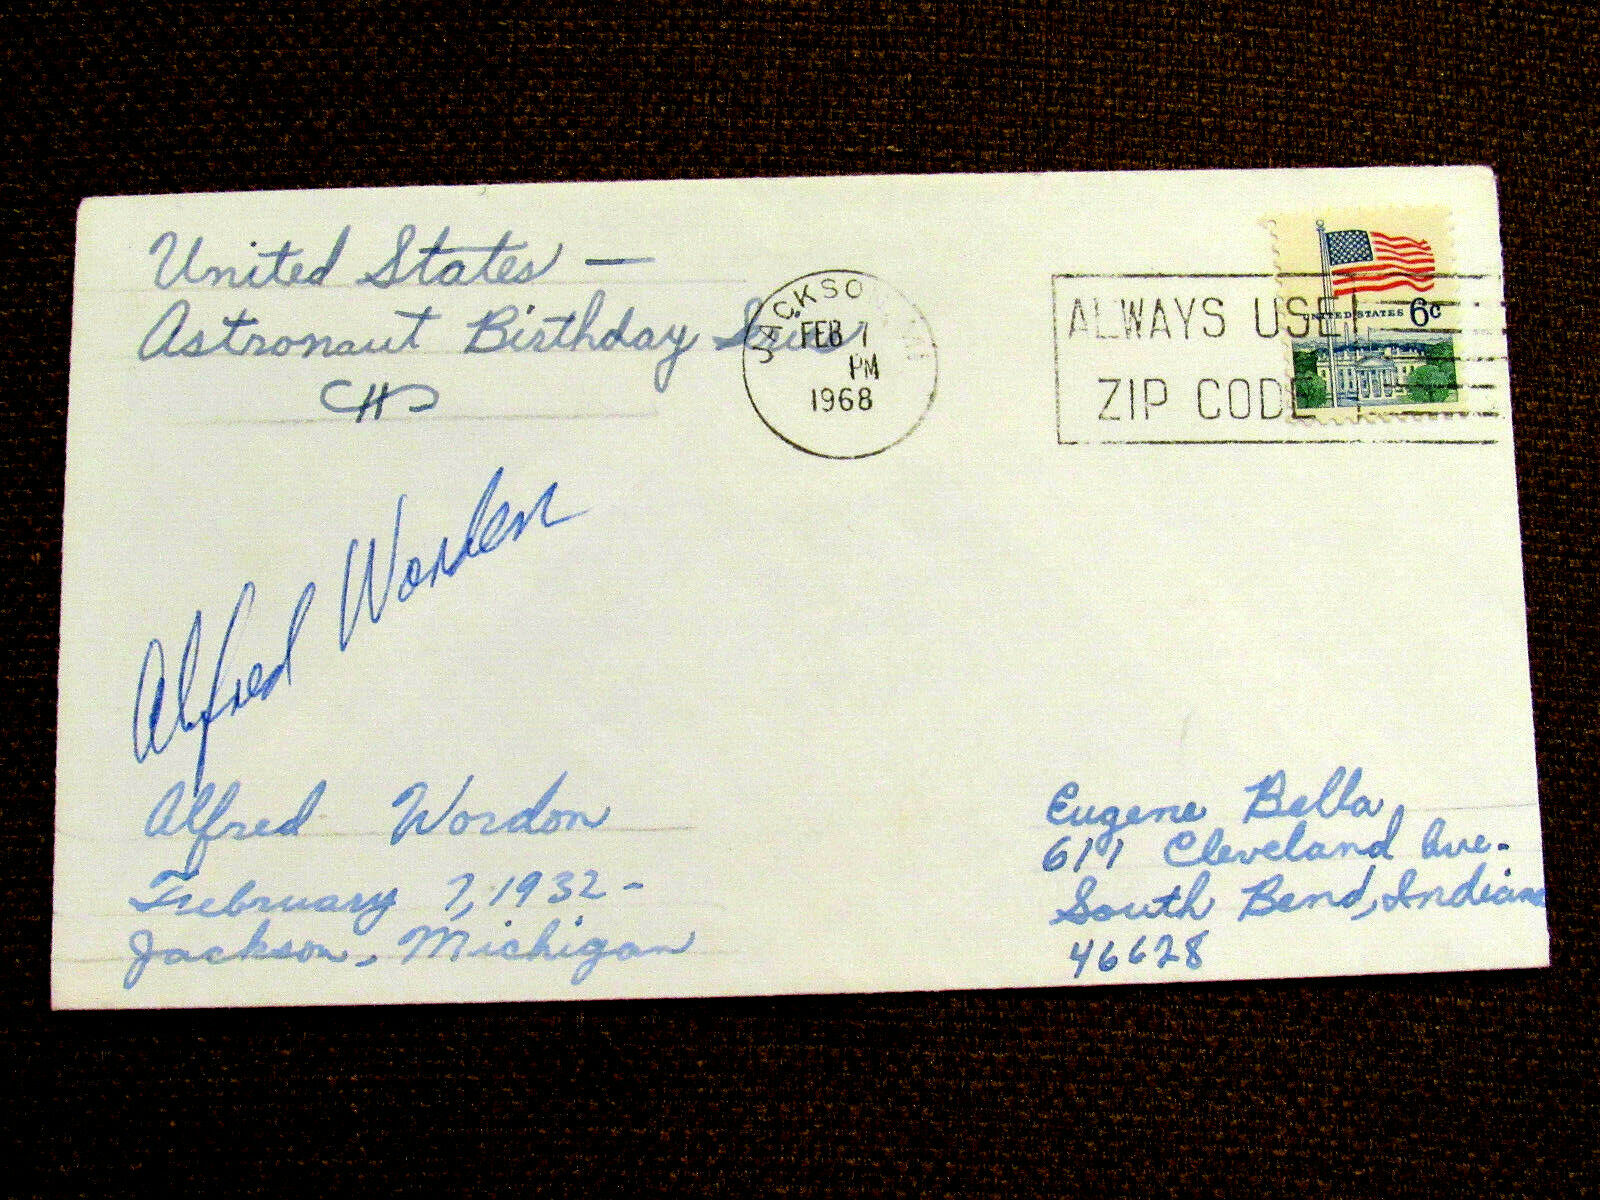 United States —
Astronaut Birthday
JACKSO
FEB 7
PM
1968
ALWAYS USE
ZIP CODE
UNITED STATES 6c
Alfred Worden
Alfred Wordon
February 7, 1932 -
Jackson, Michigan
Eugene Bella
611 Cleveland Ave.
South Bend, Indiana
46628